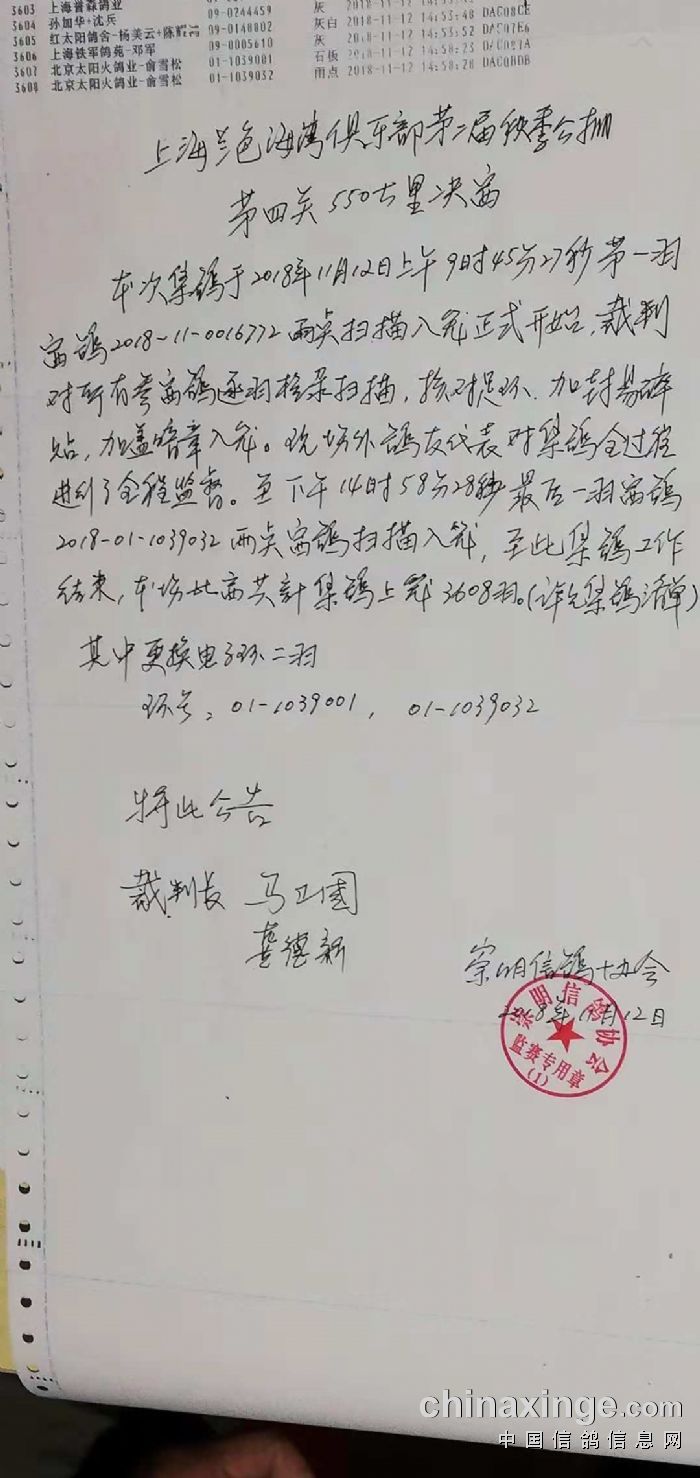 3603 上海普森鸽业 09-0244459 灰 2018-11-12 14:53:48
3604 孙加华+沈兵 09-0148802 灰白 2018-11-12 14:53:48 DAC08CE
3605 红太阳鸽舍-杨美云+陈辉 灰 2018-11-12 14:53:52 DAC07E6
3606 上海铁军鸽苑-邓军 09-0005610 石板 2018-11-12 14:58:23
3607 北京太阳火鸽业-俞雪松 01-1039001
3608 北京太阳火鸽业-俞雪松 01-1039032 雨点 2018-11-12 14:58:28 DAC0BDB
上海兰色海湾俱乐部第二届秋季公棚
第四关550公里决赛
本次集鸽于2018年11月12日上午9时45分27秒第一羽
赛鸽2018-11-0016772雨点扫描入笼正式开始,裁判
对所有参赛鸽逐羽检录扫描,核对足环、加封易碎
贴,加盖暗章入笼。现场外鸽友代表对集鸽全过程
进行了全程监督。至下午14时58分28秒最后一羽赛鸽
2018-01-1039032雨点赛鸽扫描入笼,至此集鸽工作
结束,本场比赛共计集鸽上笼3608羽。(详见集鸽清单)
其中更换电子环二羽
环号:01-1039001, 01-1039032
特此公告
裁判长 马卫国
龚德新
崇明信鸽协会
2018年11月12日
崇明信鸽协会
监赛专用章
(1)
chinaxinge.com
中国信鸽信息网